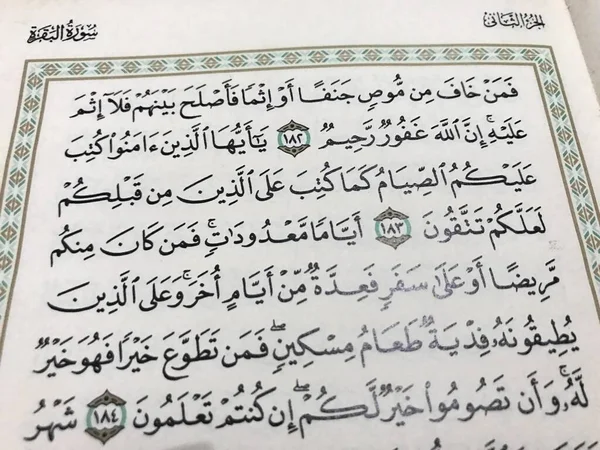 الجزء الثاني
سورة البقرة
فَمَنْ خَافَ مِن مُّوصٍ جَنَفًا أَوْ إِثْمًا فَأَصْلَحَ بَيْنَهُمْ فَلَآ إِثْمَ
عَلَيْهِ ۚ إِنَّ اللَّهَ غَفُورٌ رَّحِيمٌ ١٨٢ يَٰٓأَيُّهَا الَّذِينَ ءَامَنُوا كُتِبَ
عَلَيْكُمُ الصِّيَامُ كَمَا كُتِبَ عَلَى الَّذِينَ مِن قَبْلِكُمْ
لَعَلَّكُمْ تَتَّقُونَ ١٨٣ أَيَّامًا مَّعْدُودَٰتٍ ۚ فَمَن كَانَ مِنكُم
مَّرِيضًا أَوْ عَلَىٰ سَفَرٍ فَعِدَّةٌ مِّنْ أَيَّامٍ أُخَرَ ۚ وَعَلَى الَّذِينَ
يُطِيقُونَهُۥ فِدْيَةٌ طَعَامُ مِسْكِينٍ ۖ فَمَن تَطَوَّعَ خَيْرًا فَهُوَ خَيْرٌ
لَّهُۥ ۚ وَأَن تَصُومُوا خَيْرٌ لَّكُمْ ۖ إِن كُنتُمْ تَعْلَمُونَ ١٨٤ شَهْرُ